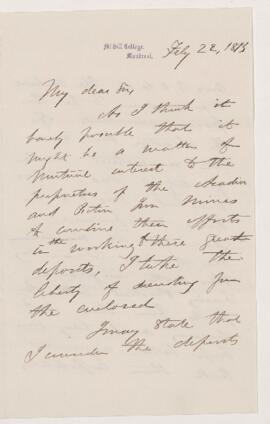 McGill College,
Montreal.
Feby 22, 1873
My dear Sir,
As I think it
barely possible that it
might be a matter of
mutual interest to the
proprietors of the Acadia
and Iron Mines
to combine their efforts
in the working these great
deposits, I take the
liberty of sending you
the enclosed
I may state that
I consider the deposits